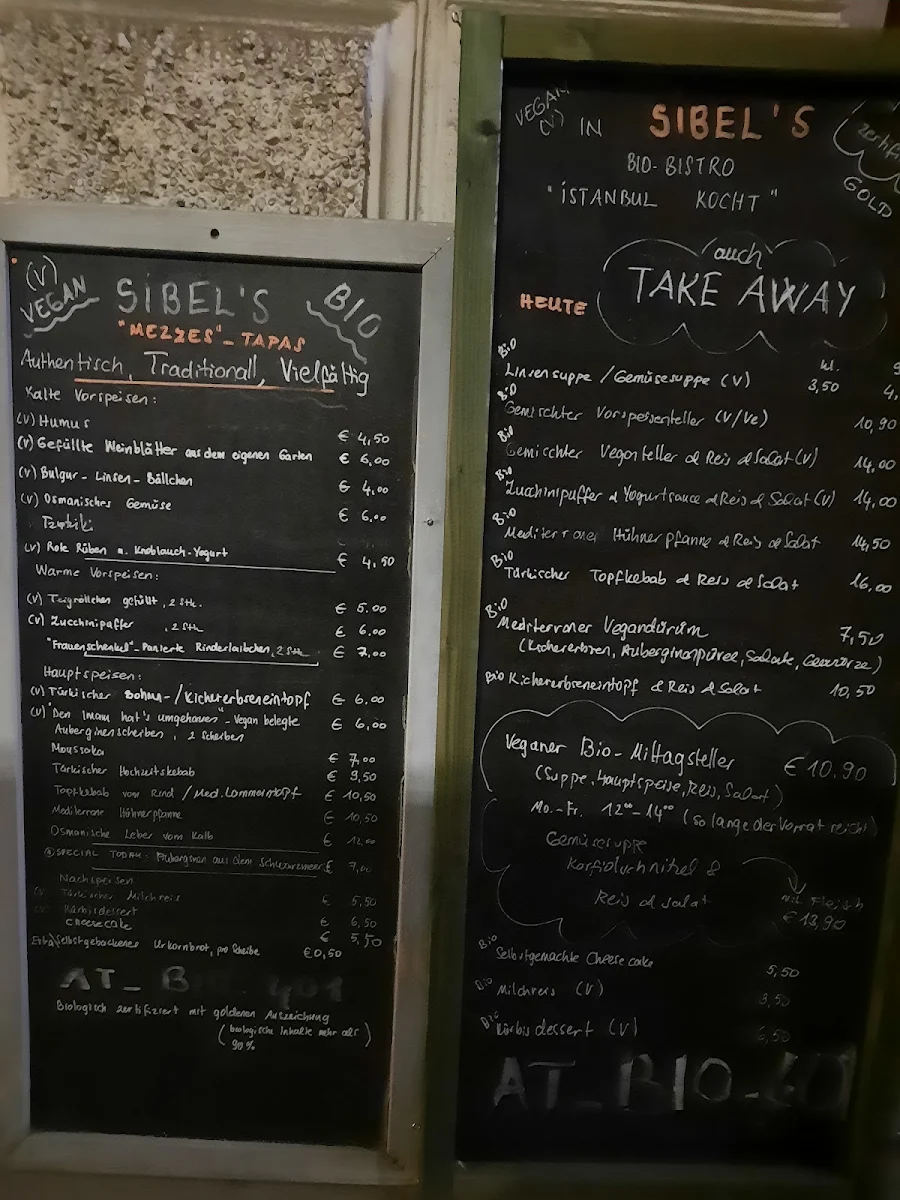 (V)
VEGAN
SİBEL'S
BIO
"MEZZES" - TAPAS
Authentisch, Traditionall, Vielfältig
Kalte Vorspeisen:
(V) Humus € 4,50
(V) Gefüllte Weinblätter aus dem eigenen Garten € 6,00
(V) Bulgur - Linsen - Bällchen € 4,00
(V) Osmanisches Gemüse € 6,00
(V) Rote Rüben m. Knoblauch-Yogurt € 4,50
Warme Vorspeisen:
(V) Teigröllchen gefüllt, 2 Stk. € 5.00
(V) Zucchinipuffer, 2 Stk € 6,00
"Frauenschenkel" - Panierte Rinderlaibchen, 2 Stk € 7,00
Hauptspeisen:
(V) Türkischer Bohnen-/Kichererbseneintopf € 6,00
(V) "Den Imam hat's umgehauen" - Vegan belegte € 6,00
Auberginenscheiben, 2 Scheiben
Moussaka € 7,00
Türkischer Hochzeitskebab € 9,50
Topfkebab vom Rind / Med. Lammeintopf € 10,50
Mediterrane Hühnerpfanne € 10,50
Osmanische Leber vom Kalb € 12,00
SPECIAL TODAY: aus dem Schwarzmeer € 7,00
Nachspeisen
Türkischer Milchreis € 5,50
Kürbisdessert € 6,50
cheesecake € 5,50
Extra Selbstgebackenes Urkornbrot, pro Scheibe €0,50
AT_ BIO 401
Biologisch zertifiziert mit goldenen Auszeichnung
(biologische Inhalte mehr als
90%)
VEGAN
(V) IN SIBEL'S
GOLD
BIO-BISTRO
"İSTANBUL KOCHT"
auch
TAKE AWAY
HEUTE
kl.
Bio Linsensuppe / Gemüsesuppe (V) 3,50 4,
Bio Gemischter Vorspeisenteller (V/Ve) 10,90
Bio Gemischter Veganteller & Reis & Salat (V) 14,00
Bio Zucchinipuffer & Yogurtsauce & Reis & Salat (V) 14,00
Bio Mediterrane Hühnerpfanne & Reis & Salat 14,50
Bio Türkischer Topfkebab & Reis & Salat 16,00
Bio Mediterraner Vegandürüm 7,50
(Kichererbsen, Auberginenpüree, Salate, Gewürze)
Bio Kichererbseneintopf & Reis & Salat 10,50
Veganer Bio-Mittagsteller €10.90
(Suppe, Hauptspeise, Reis, Salat)
Mo.-Fr. 12⁰⁰-14⁰⁰ (solange der Vorrat reicht)
Gemüsesuppe
Karfiolschnitzel &
Reis & Salat
mit Fleisch
€ 13,90
Bio Selbstgemachte Cheesecake 5,50
Bio Milchreis (V) 3,50
Bio Kürbisdessert (V) 6,50
AT_BIO_40